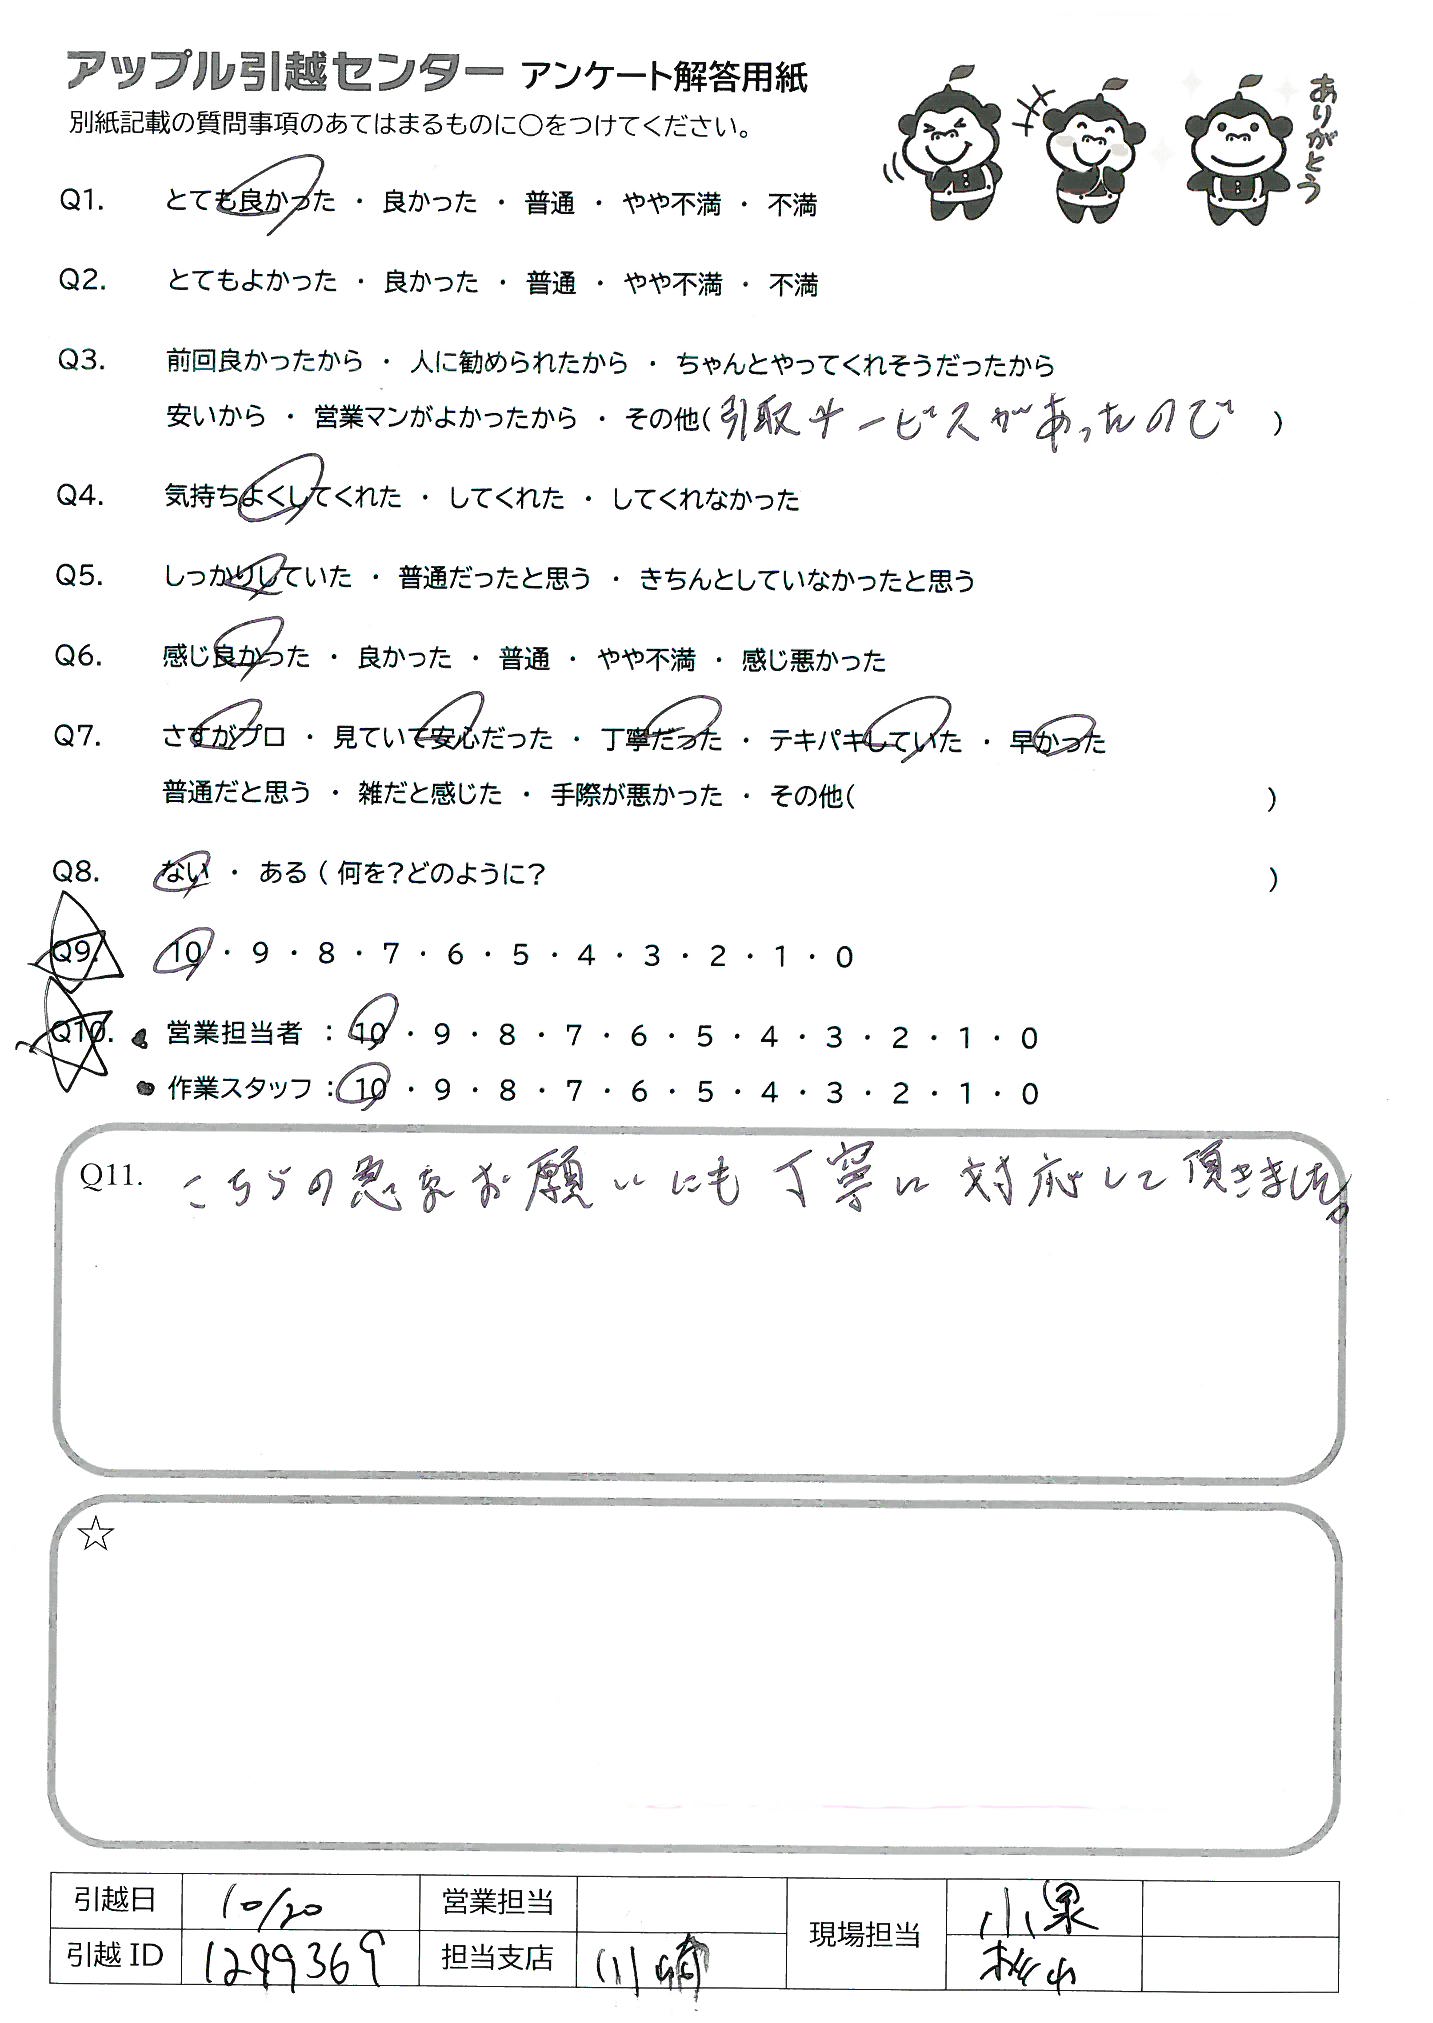 アップル引越センター アンケート解答用紙
別紙記載の質問事項のあてはまるものに○をつけてください。
ありがとう
Q1. とても良かった ・ 良かった ・ 普通 ・ やや不満 ・ 不満
Q2. とてもよかった ・ 良かった ・ 普通 ・ やや不満 ・ 不満
Q3. 前回良かったから ・ 人に勧められたから ・ ちゃんとやってくれそうだったから
安いから ・ 営業マンがよかったから ・ その他( 引取サービスがあったので )
Q4. 気持ちよくしてくれた ・ してくれた ・ してくれなかった
Q5. しっかりしていた ・ 普通だったと思う ・ きちんとしていなかったと思う
Q6. 感じ良かった ・ 良かった ・ 普通 ・ やや不満 ・ 感じ悪かった
Q7. さすがプロ ・ 見ていて安心だった ・ 丁寧だった ・ テキパキしていた ・ 早かった
普通だと思う ・ 雑だと感じた ・ 手際が悪かった ・ その他( )
Q8. ない ・ ある ( 何を?どのように? )
Q9. 10 ・ 9 ・ 8 ・ 7 ・ 6 ・ 5 ・ 4 ・ 3 ・ 2 ・ 1 ・ 0
Q10. ● 営業担当者 : 10 ・ 9 ・ 8 ・ 7 ・ 6 ・ 5 ・ 4 ・ 3 ・ 2 ・ 1 ・ 0
● 作業スタッフ : 10 ・ 9 ・ 8 ・ 7 ・ 6 ・ 5 ・ 4 ・ 3 ・ 2 ・ 1 ・ 0
Q11. こちらの急なお願いにも丁寧に対応して頂きました。
☆
引越日 10/20 営業担当 現場担当 小泉
引越 ID 1299369 担当支店 川崎 松山